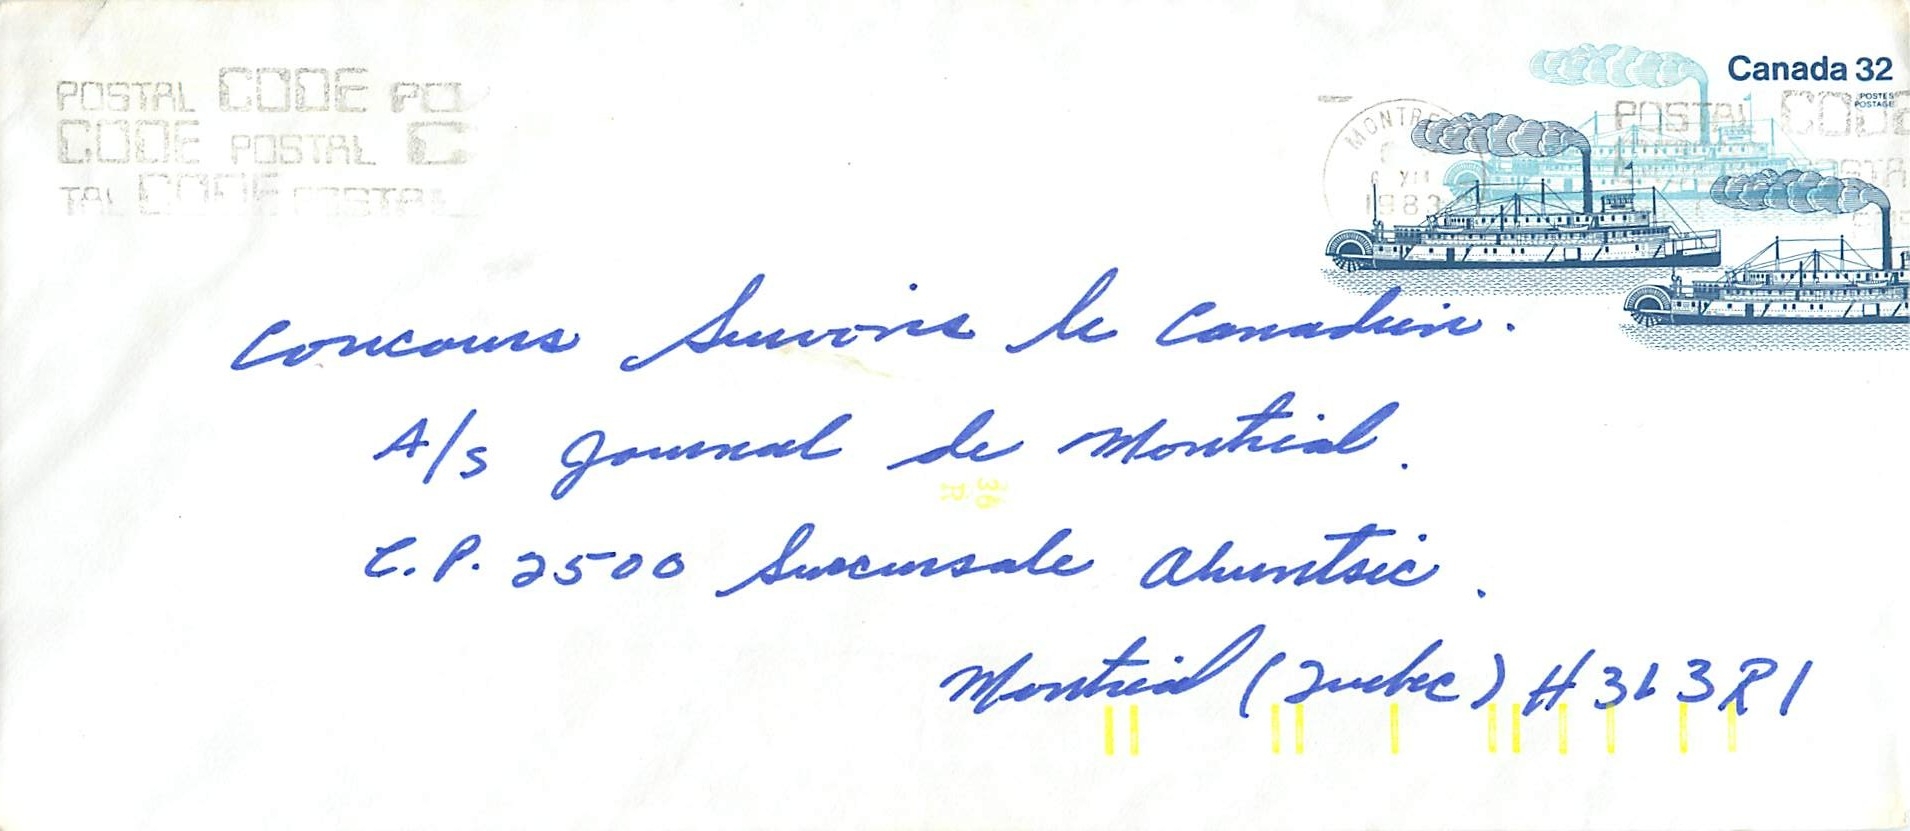 POSTAL CODE PO
CODE POSTAL C
TAL CODE POSTAL
Canada 32
POSTES
POSTAGE
MONTRE
VII
1983
POSTAL CODE
Concours Suivons le Canadien.
A/s Journal de Montréal.
36
R
C.P. 2500 Succursale Ahuntsic.
Montréal (Quebec) H3L3R1